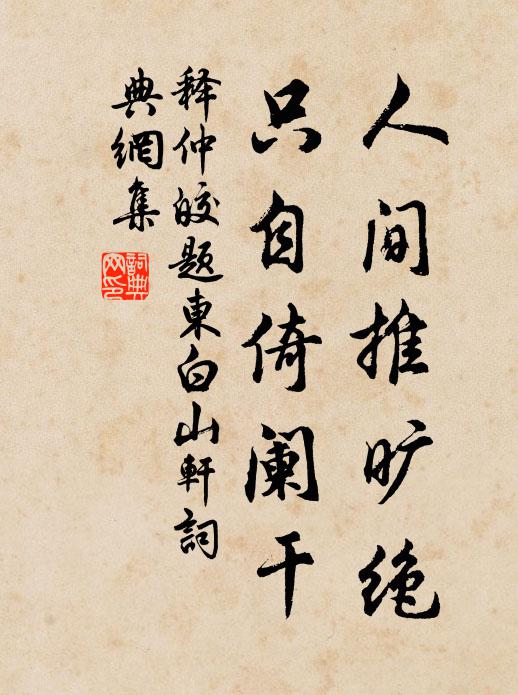 人间推旷绝
只自倚阑干
释仲皎题東白山軒詞
典網集
詞典
网印